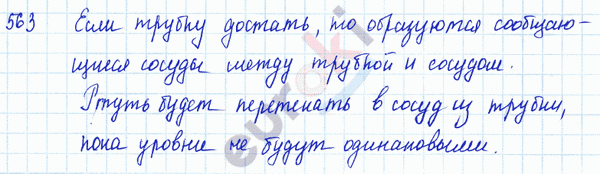 563 Если трубку достать, то образуются сообщаю-
щиеся сосуды между трубкой и сосудом.
Ртуть будет перетекать в сосуд из трубки,
пока уровни не будут одинаковыми.
euroki